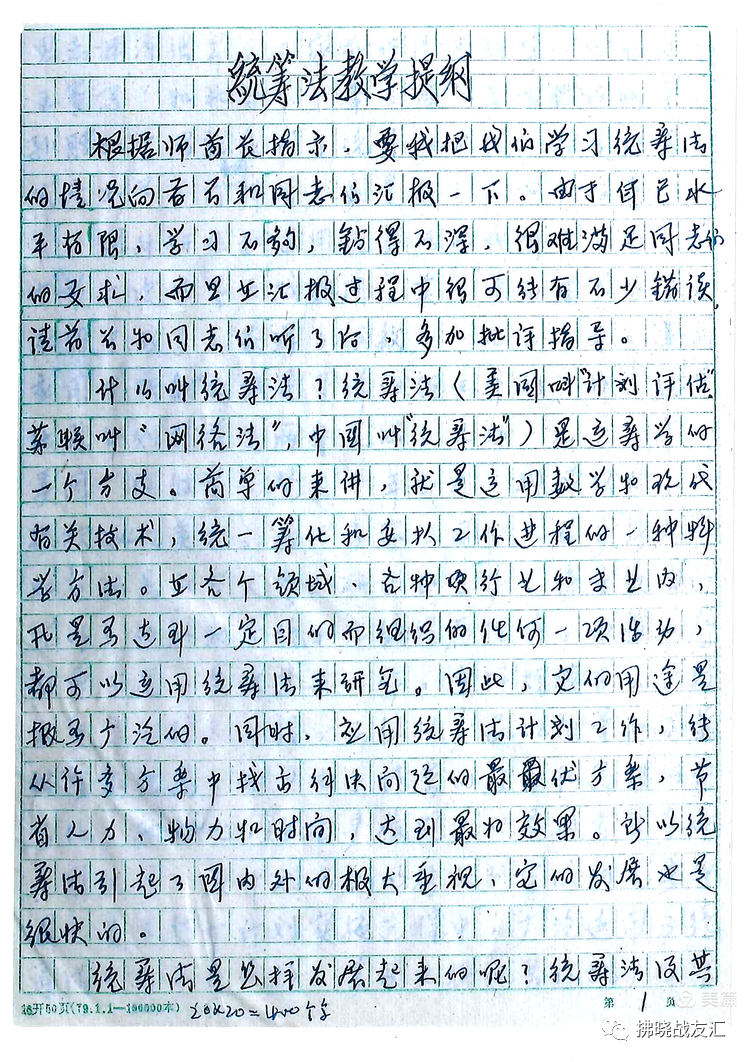 統筹法教学提纲
根据师首长指示，要我把我们学习统筹法
的情况向首长和同志们汇报一下。由于自己水
平有限，学习不够，钻得不深，很难满足同志们
的要求，而且在汇报过程中很可能有不少错误，
请首长和同志们听了后，多加批评指导。
什么叫统筹法？统筹法（美国叫"计划评估"
苏联叫"网络法"，中国叫"统筹法"）是运筹学的
一个分支。简单的来讲，就是运用数学和现代
有关技术，统一筹化和安排工作进程的一种科
学方法。在各个领域、各种项行业和事业内，
凡是为达到一定目的而组织的任何一项活动，
都可以运用统筹法来研究。因此，它的用途是
极为广泛的。同时，应用统筹法计划工作，能
从许多方案中找出解决问题的最最优方案，节
省人力、物力和时间，达到最好效果。所以统
筹法引起了国内外的极大重视，它的发展也是
很快的。
统筹法是怎样发展起来的呢？统筹法及其
16开50页(79.1.1—100000本) 20×20=400个字 第 1 页
美篇
拂晓战友汇